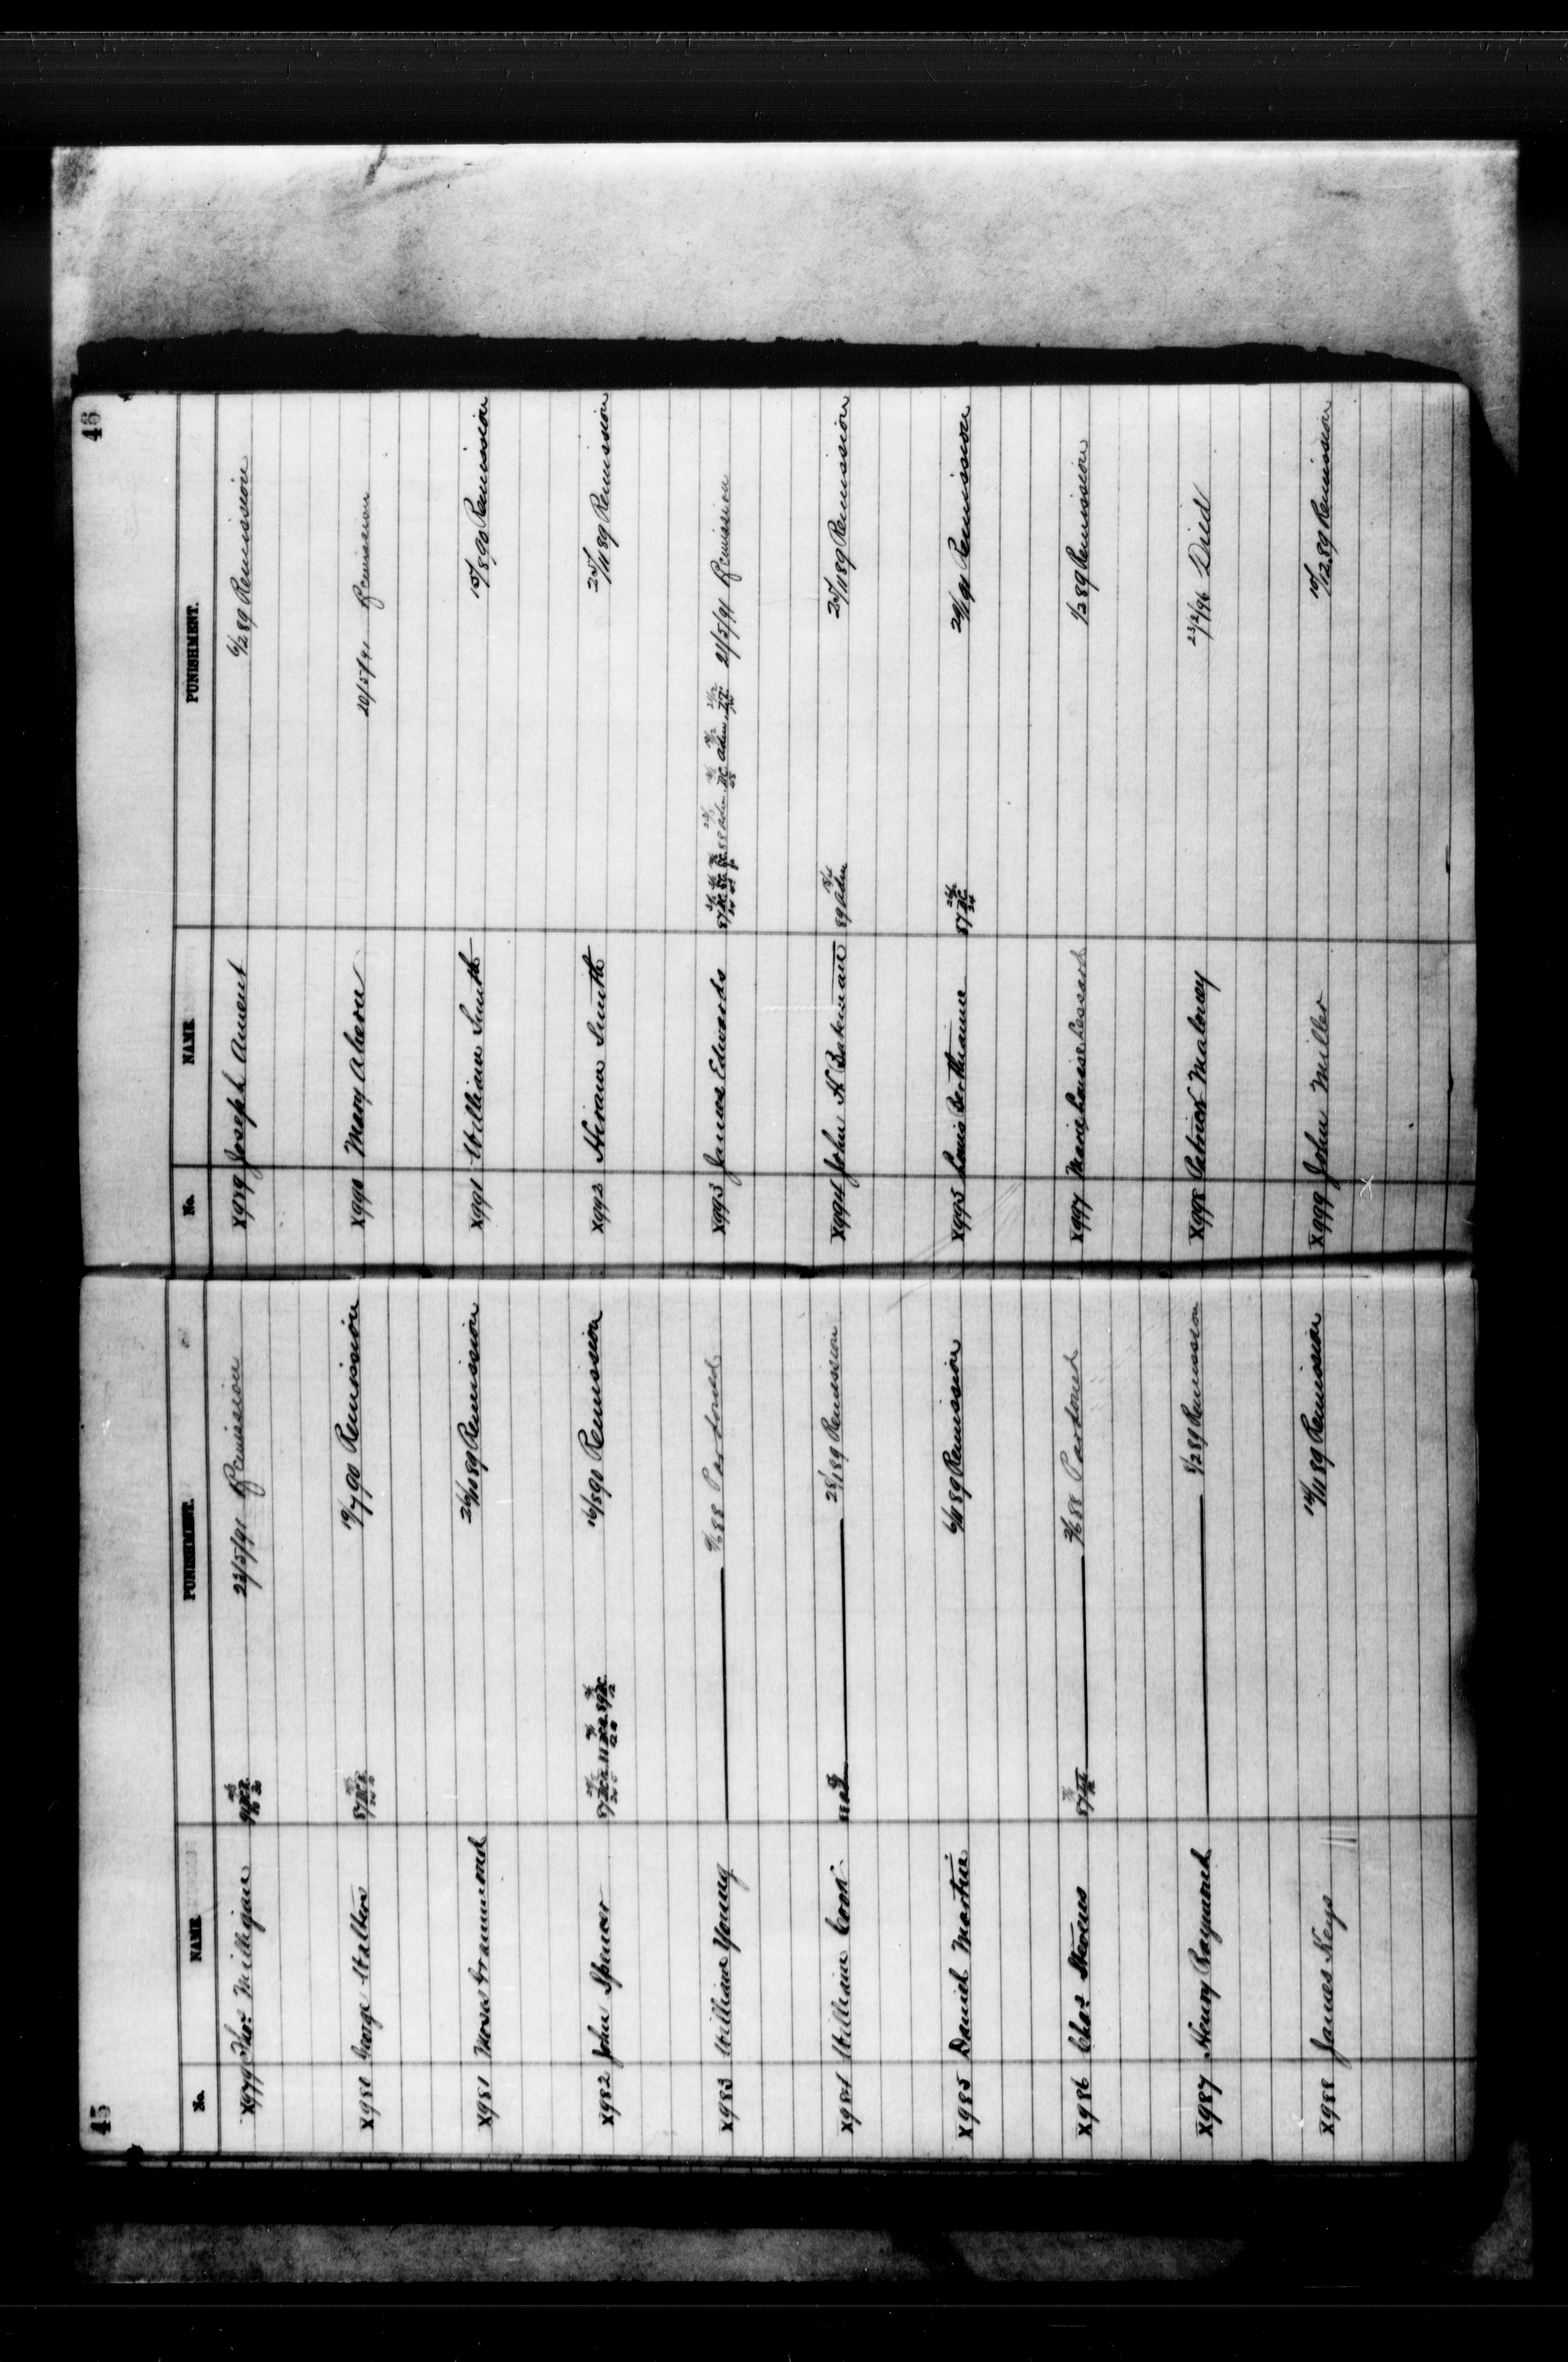 45
No. NAME PUNISHMENT.
X979 Thos Milligan 23/5/91 Remission
X980 George Walters 19/7 90 Remission
X981 Moses Grammond 26/10 89 Remission
X982 John Spencer 16/5 90 Remission
X983 William Young 88 Pardoned
X984 William Cook 28/1 89 Remission
X985 Daniel Martin 6/11 89 Remission
X986 Chas Stevens 88 Pardoned
X987 Henry Raymond 8/2 89 Remission
X988 James Keys 14/11 89 Remission
46
No. NAME PUNISHMENT.
X989 Joseph Ament 6/2 89 Remission
X990 Mary Ahern 20/5/91 Remission
X991 William Smith 15/8 90 Remission
X992 Hiram Smith 25/11 89 Remission
X993 James Edwards 21/5/91 Remission
X994 John H Bateman 89 Adm 25/11 89 Remission
X995 Louis Berthiaume 91 Remission
X997 Marie Louise Lessard 1/2 89 Remission
X998 Patrick Maloney 23/2/96 Died
X999 John Miller 10/12 89 Remission